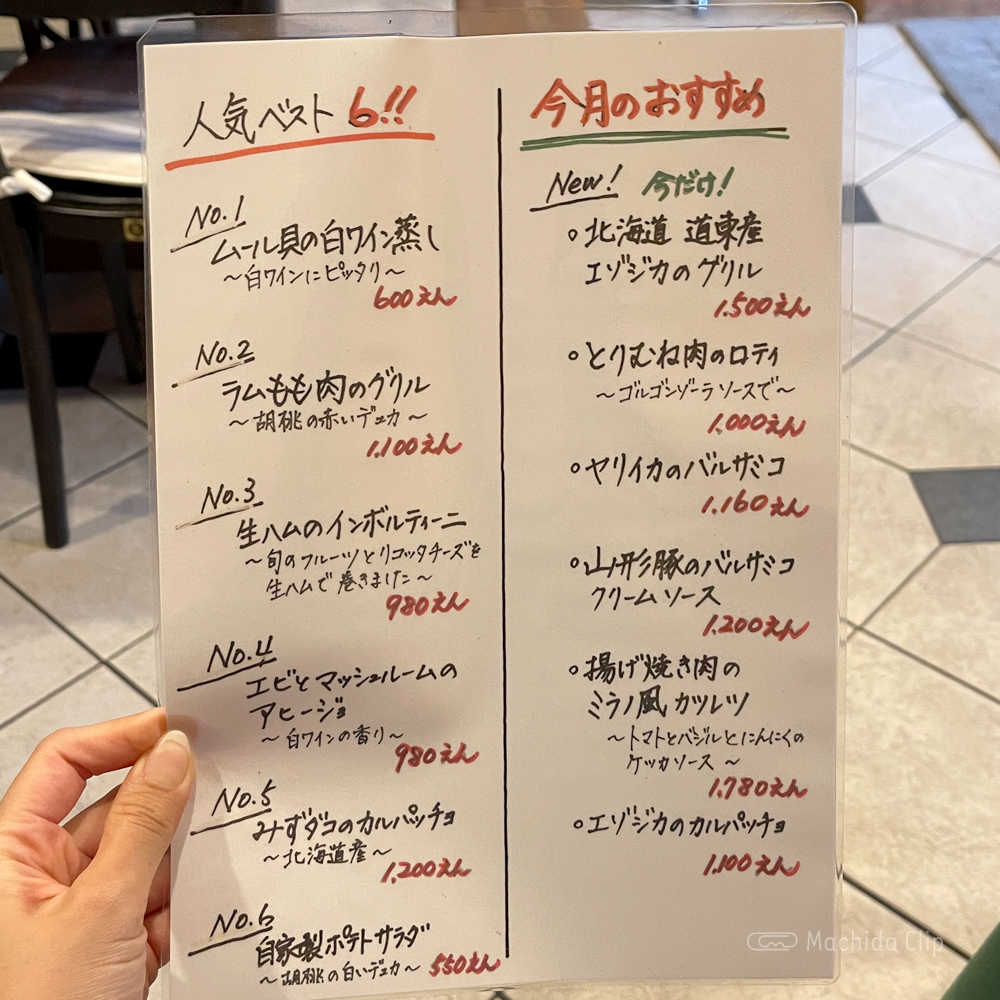 人気ベスト 6!!
No.1
ムール貝の白ワイン蒸し
～白ワインにピッタリ～
600えん
No.2
ラムもも肉のグリル
～胡桃の赤いデュカ～
1.100えん
No.3
生ハムのインボルティーニ
～旬のフルーツとリコッタチーズを
生ハムで巻きました～
980えん
No.4
エビとマッシュルームの
アヒージョ
～白ワインの香り～
980えん
No.5
みずダコのカルパッチョ
～北海道産～
1.200えん
No.6
自家製ポテトサラダ
～胡桃の白いデュカ～ 550えん
今月のおすすめ
New! 今だけ!
○北海道 道東産
エゾジカのグリル
1.500えん
○とりむね肉のロティ
～ゴルゴンゾーラソースで～
1.000えん
○ヤリイカのバルサミコ
1.160えん
○山形豚のバルサミコ
クリームソース
1.200えん
○揚げ焼き肉の
ミラノ風カツレツ
～トマトとバジルとにんにくの
ケッカソース～
1.780えん
○エゾジカのカルパッチョ
1.100えん
Machida Clip